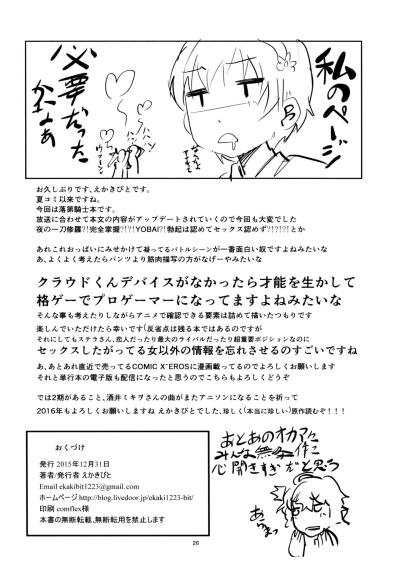 私のページ
必要だったかなぁ
お久しぶりです、えかきびとです。
夏コミ以来ですね。
今回は落第騎士本です。
放送に合わせて本文の内容がアップデートされていくので今回も大変でした
夜の一刀修羅?!完全掌握?!?!YOBAI?!勃起は認めてセックス認めず?!?!?!とか
あれこれおっぱいにみせかけて凝ってるバトルシーンが一番面白い奴ですよねみたいな
あ、よくよく考えたらパンツより筋肉描写の方がなげーやみたいな
クラウドくんデバイスがなかったら才能を生かして
格ゲーでプロゲーマーになってますよねみたいな
そんな事も考えたりしながらアニメで確認できる要素は詰めて描いたつもりです
楽しんでいただけたら幸いです(反省点は残る本ではあるのですが
それにしてもステラさん、恋人だったり最大のライバルだったり超重要ポジションなのに
セックスしたがってる女以外の情報を忘れさせるのすごいですね
あ、あとあれ直近で売ってるCOMIC X'EROSに漫画載ってるのでよろしくお願いします
それと単行本の電子版も配信になったと思うのでこちらもよろしくどうぞ
では2期があること、酒井ミキヲさんの曲がまたアニソンになることを祈って
2016年もよろしくお願いしますね えかきびとでした、珍しく(本当に珍しい)原作読むぞ!!!
おくづけ
発行 2015年12月31日
著者/発行者 えかきびと
Email ekakibit1223@gmail.com
ホームページ http://blog.livedoor.jp/ekaki1223-bit/
印刷 comflex様
本書の無断転載、無断転用を禁止します
あとあのオカマに
みんな無条件に
心開きすぎだと思う
26